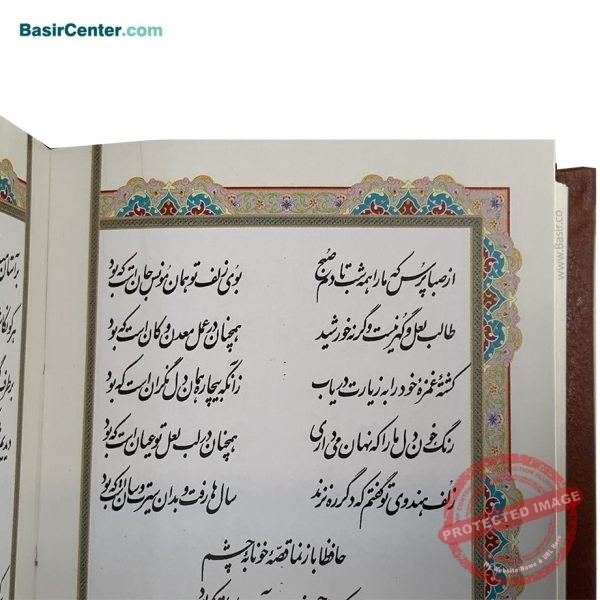 BasirCenter.com
از صبا پرس که ما را همه شب تا دم صبح
بوی زلف تو همان مونس جان است که بود
طالب لعل و گهر نیست وگرنه خورشید
همچنان در عمل معدن و کان است که بود
کشتهٔ غمزهٔ خود را به زیارت دریاب
زانکه بیچاره همان دل نگران است که بود
رنگ خون دل ما را که نهان می داری
همچنان در لب لعل تو عیان است که بود
زلف هندوی تو گفتم که دگر ره نزند
سال ها رفت و بدان سیرت و سان است که بود
حافظا باز نما قصهٔ خونابهٔ چشم
www.Basir.co
PROTECTED IMAGE